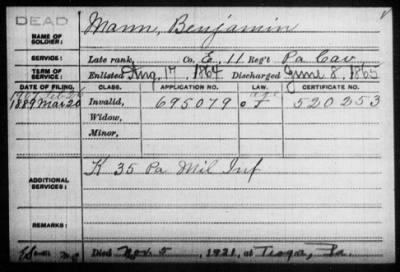 DEAD
NAME OF SOLDIER: Mann, Benjamin
SERVICE: Late rank, Co. E, 11 Reg't Pa Cav
TERM OF SERVICE: Enlisted Aug. 17, 1864 Discharged June 8, 1865
DATE OF FILING. CLASS. APPLICATION NO. LAW. CERTIFICATE NO.
1889 Mar 20 Invalid, 695079 520253
Widow,
Minor,
ADDITIONAL SERVICES: K 35 Pa Mil Inf
REMARKS:
Died Nov. 5, 1921, at Tioga, Pa.